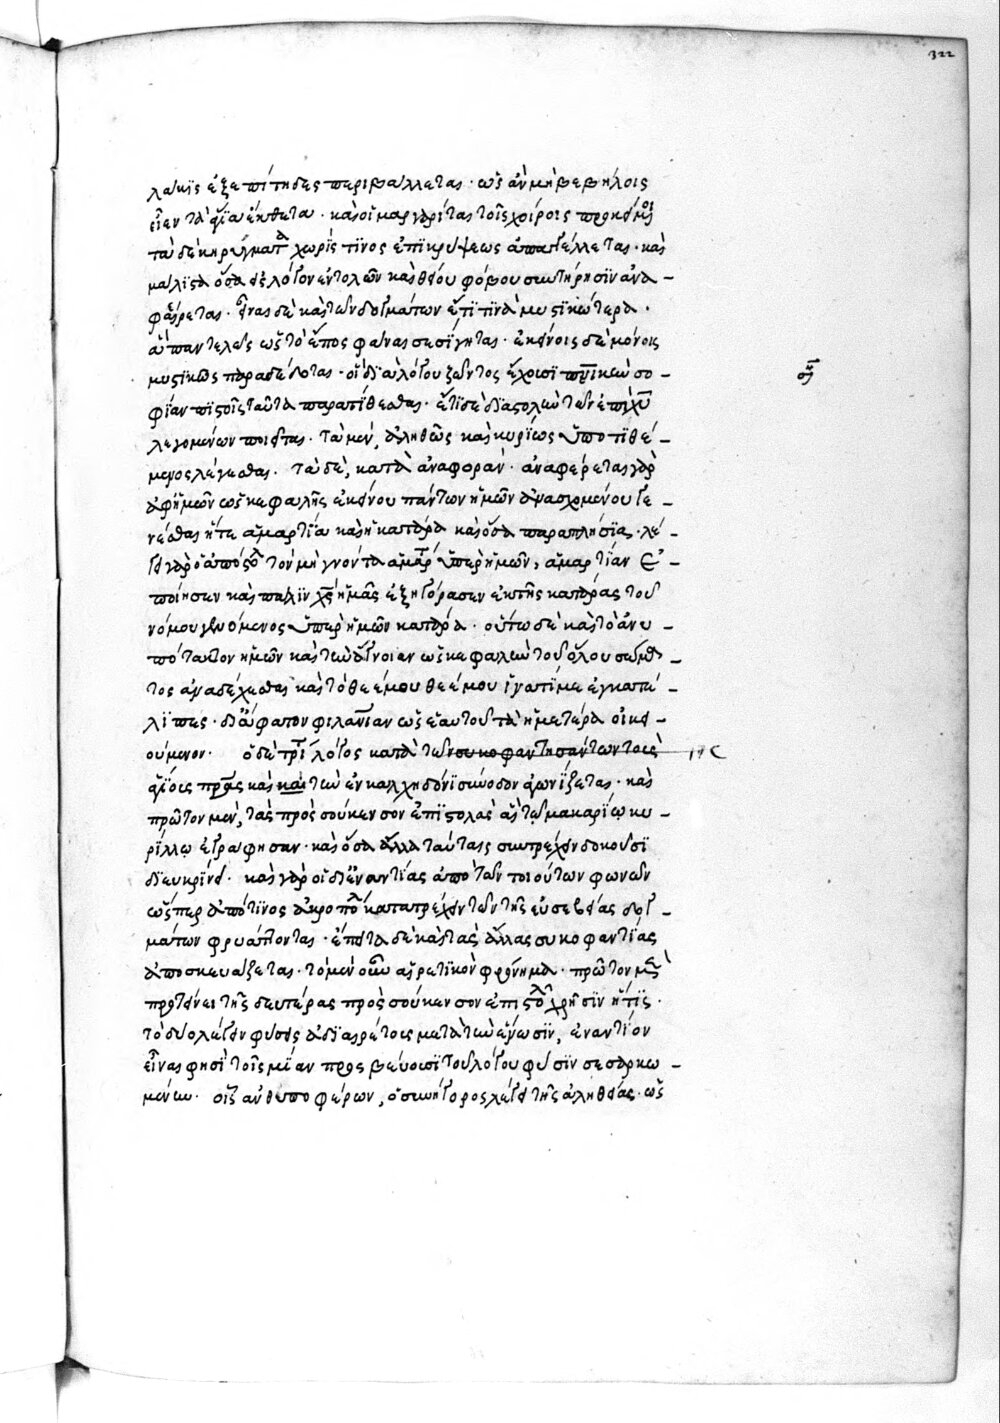 322
λάκις ἐξεπίτηδες περιβάλλεται· ὡς ἂν μὴ βεβήλοις
εἶεν τὰ θεῖα ἔκθετα· καὶ οἱ μαργαρῖται τοῖς χοίροις προκείμενοι
τὰ δὲ κηρύγματα χωρίς τινος ἐπικρύψεως ἀπαγγέλλεται· καὶ
μάλιστα ὅσα εἰς λόγον ἐντολῶν καὶ θείου φόβου συντήρησιν ἀνα-
φέρεται· εἶναι δὲ καὶ τῶν δογμάτων ἔτι τινὰ μυστικώτερα·
ἃ παντελεῖ ὡς τὸ ἔπος φάναι σεσίγηται· ἐκείνοις δὲ μόνοις
μυστικῶς παραδέδοται· οἳ διὰ λόγου ζῶντος ἔχουσι πνευματικὴν σο-
φίαν πιστοῖς ταῦτα παρατίθεσθαι· ἔτι δὲ διαστολὴν τῶν ἐπὶ χῦ
λεγομένων ποιεῖται· τὰ μὲν, ἀληθῶς καὶ κυρίως ὑποτιθέ-
μενος λέγεσθαι. τὰ δὲ, κατὰ ἀναφοράν· ἀναφέρεται γὰρ
ἀφ' ἡμῶν ὡς κεφαλῆς ἐκείνου πάντων ἡμῶν ἀνασχομένου γε-
νέσθαι ἥτε ἁμαρτία καὶ ἡ κατάρα καὶ ὅσα παραπλήσια· λέ-
γει γὰρ ὁ ἀπόστολος τὸν μὴ γνόντα ἁμαρτίαν ὑπὲρ ἡμῶν, ἁμαρτίαν ἐ-
ποίησεν καὶ πάλιν χς ἡμᾶς ἐξηγόρασεν ἐκ τῆς κατάρας τοῦ
νόμου γενόμενος ὑπὲρ ἡμῶν κατάρα· οὕτω δὲ καὶ τὸ ἀνυ-
πότακτον ἡμῶν καὶ τὴν ἄγνοιαν ὡς κεφαλὴ τοῦ ὅλου σώμα-
τος ἀναδέχεσθαι καὶ τὸ θεέ μου θεέ μου ἵνα τί με ἐγκατέ-
λιπες· δι' ἄφατον φιλανίαν ὡς ἑαυτοῦ τὰ ἡμέτερα οἰκει-
ούμενον· ὁ δὲ τρί λόγος κατὰ τῶν συκοφαντησάντων τοὺς
θείους πρας καὶ καὶ τὴν ἐν καλχηδόνι σύνοδον ἀγωνίζεται· καὶ
πρῶτον μὲν, τὰς πρὸς σούκενσον ἐπιστολὰς αἳ τῷ μακαρίῳ κυ-
ρίλλῳ ἐγράφησαν· καὶ ὅσα ἄλλα ταύταις συντρέχειν δοκοῦσι
διευκρινεῖ· καὶ γὰρ οἱ δι' ἐναντίας ἀπὸ τῶν τοιούτων φωνῶν
ὥσπερ ἀπό τινος ἀκροπόλεως κατατρέχειν τῶν τῆς εὐσεβείας δογ-
μάτων φρυάττονται· ἔπειτα δὲ καὶ τὰς ἄλλας συκοφαντίας
ἀποσκευάζεται· τὸ μὲν οὖν αἱρετικὸν φρόνημα· πρῶτον μὲν
προτείνει τῆς δευτέρας πρὸς σούκενσον ἐπιστολῆς χρῆσιν ἥτις·
τὸ δύο λέγειν φύσεις ἀδιαιρέτους μετὰ τὴν ἕνωσιν, ἐναντίον
εἶναι φησὶ τοῖς μίαν πρεσβεύουσι τοῦ λόγου φύσιν σεσαρκω-
μένην. οἷς ἀνθυποφέρων, ὁ συνήγορος λέγει τῆς ἀληθείας· ὡς